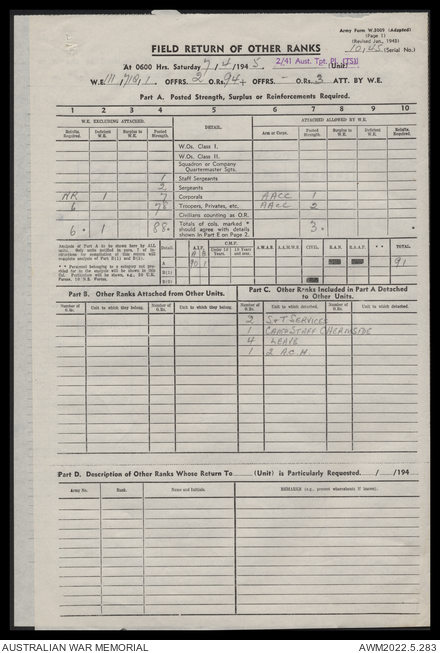 Army Form W.3009 (Adapted)
(Page 1)
(Revised Jan., 1943)
FIELD RETURN OF OTHER RANKS
10/45 (Serial No.)
At 0600 Hrs. Saturday 7/4/1945. 2/41 Aust. Tpt. Pl. (TSI) (Unit)
W.E. III/718/1. OFFRS. 2 O.Rs. 94 + OFFRS. - O.Rs. 3 ATT. BY W.E.
Part A. Posted Strength, Surplus or Reinforcements Required.
1 2 3 4 5 6 7 8 9 10
W.E. EXCLUDING ATTACHED. DETAIL. ATTACHED ALLOWED BY W.E.
Reinfts. Required. Deficient W.E. Surplus to W.E. Posted Strength. Arm or Corps. Posted Strength. Surplus to W.E. Deficient W.E. Reinfts. Required.
W.Os. Class I.
W.Os. Class II.
Squadron or Company Quartermaster Sgts.
1 Staff Sergeants
2 Sergeants
NR 1 7 Corporals AACC 1
6 78 Troopers, Privates, etc. AACC 2
Civilians counting as O.R.
6 1 88 Totals of cols. marked * should agree with details shown in Part E on Page 2. 3
Analysis of Part A to be shown here by ALL units.
Detail. A.I.F. C.M.F. Under 19 Years. 19 Years and over. A.W.A.S. A.A.M.W.S. CIVIL. R.A.N. R.A.A.F. * * TOTAL.
A 90 1 91
B(1)
B(2)
Part B. Other Ranks Attached from Other Units.
Part C. Other Ranks Included in Part A Detached to Other Units.
Number of O.Rs. Unit to which they belong. Number of O.Rs. Unit to which they belong. Number of O.Rs. Unit to which detached. Number of O.Rs. Unit to which detached.
2 S & T SERVICES
1 CAMP STAFF CHERMSIDE
4 LEAVE
1 2 A.C.H.
Part D. Description of Other Ranks Whose Return To (Unit) is Particularly Requested. / /194
Army No. Rank. Name and Initials. REMARKS (e.g., present whereabouts if known).
AUSTRALIAN WAR MEMORIAL
AWM2022.5.283